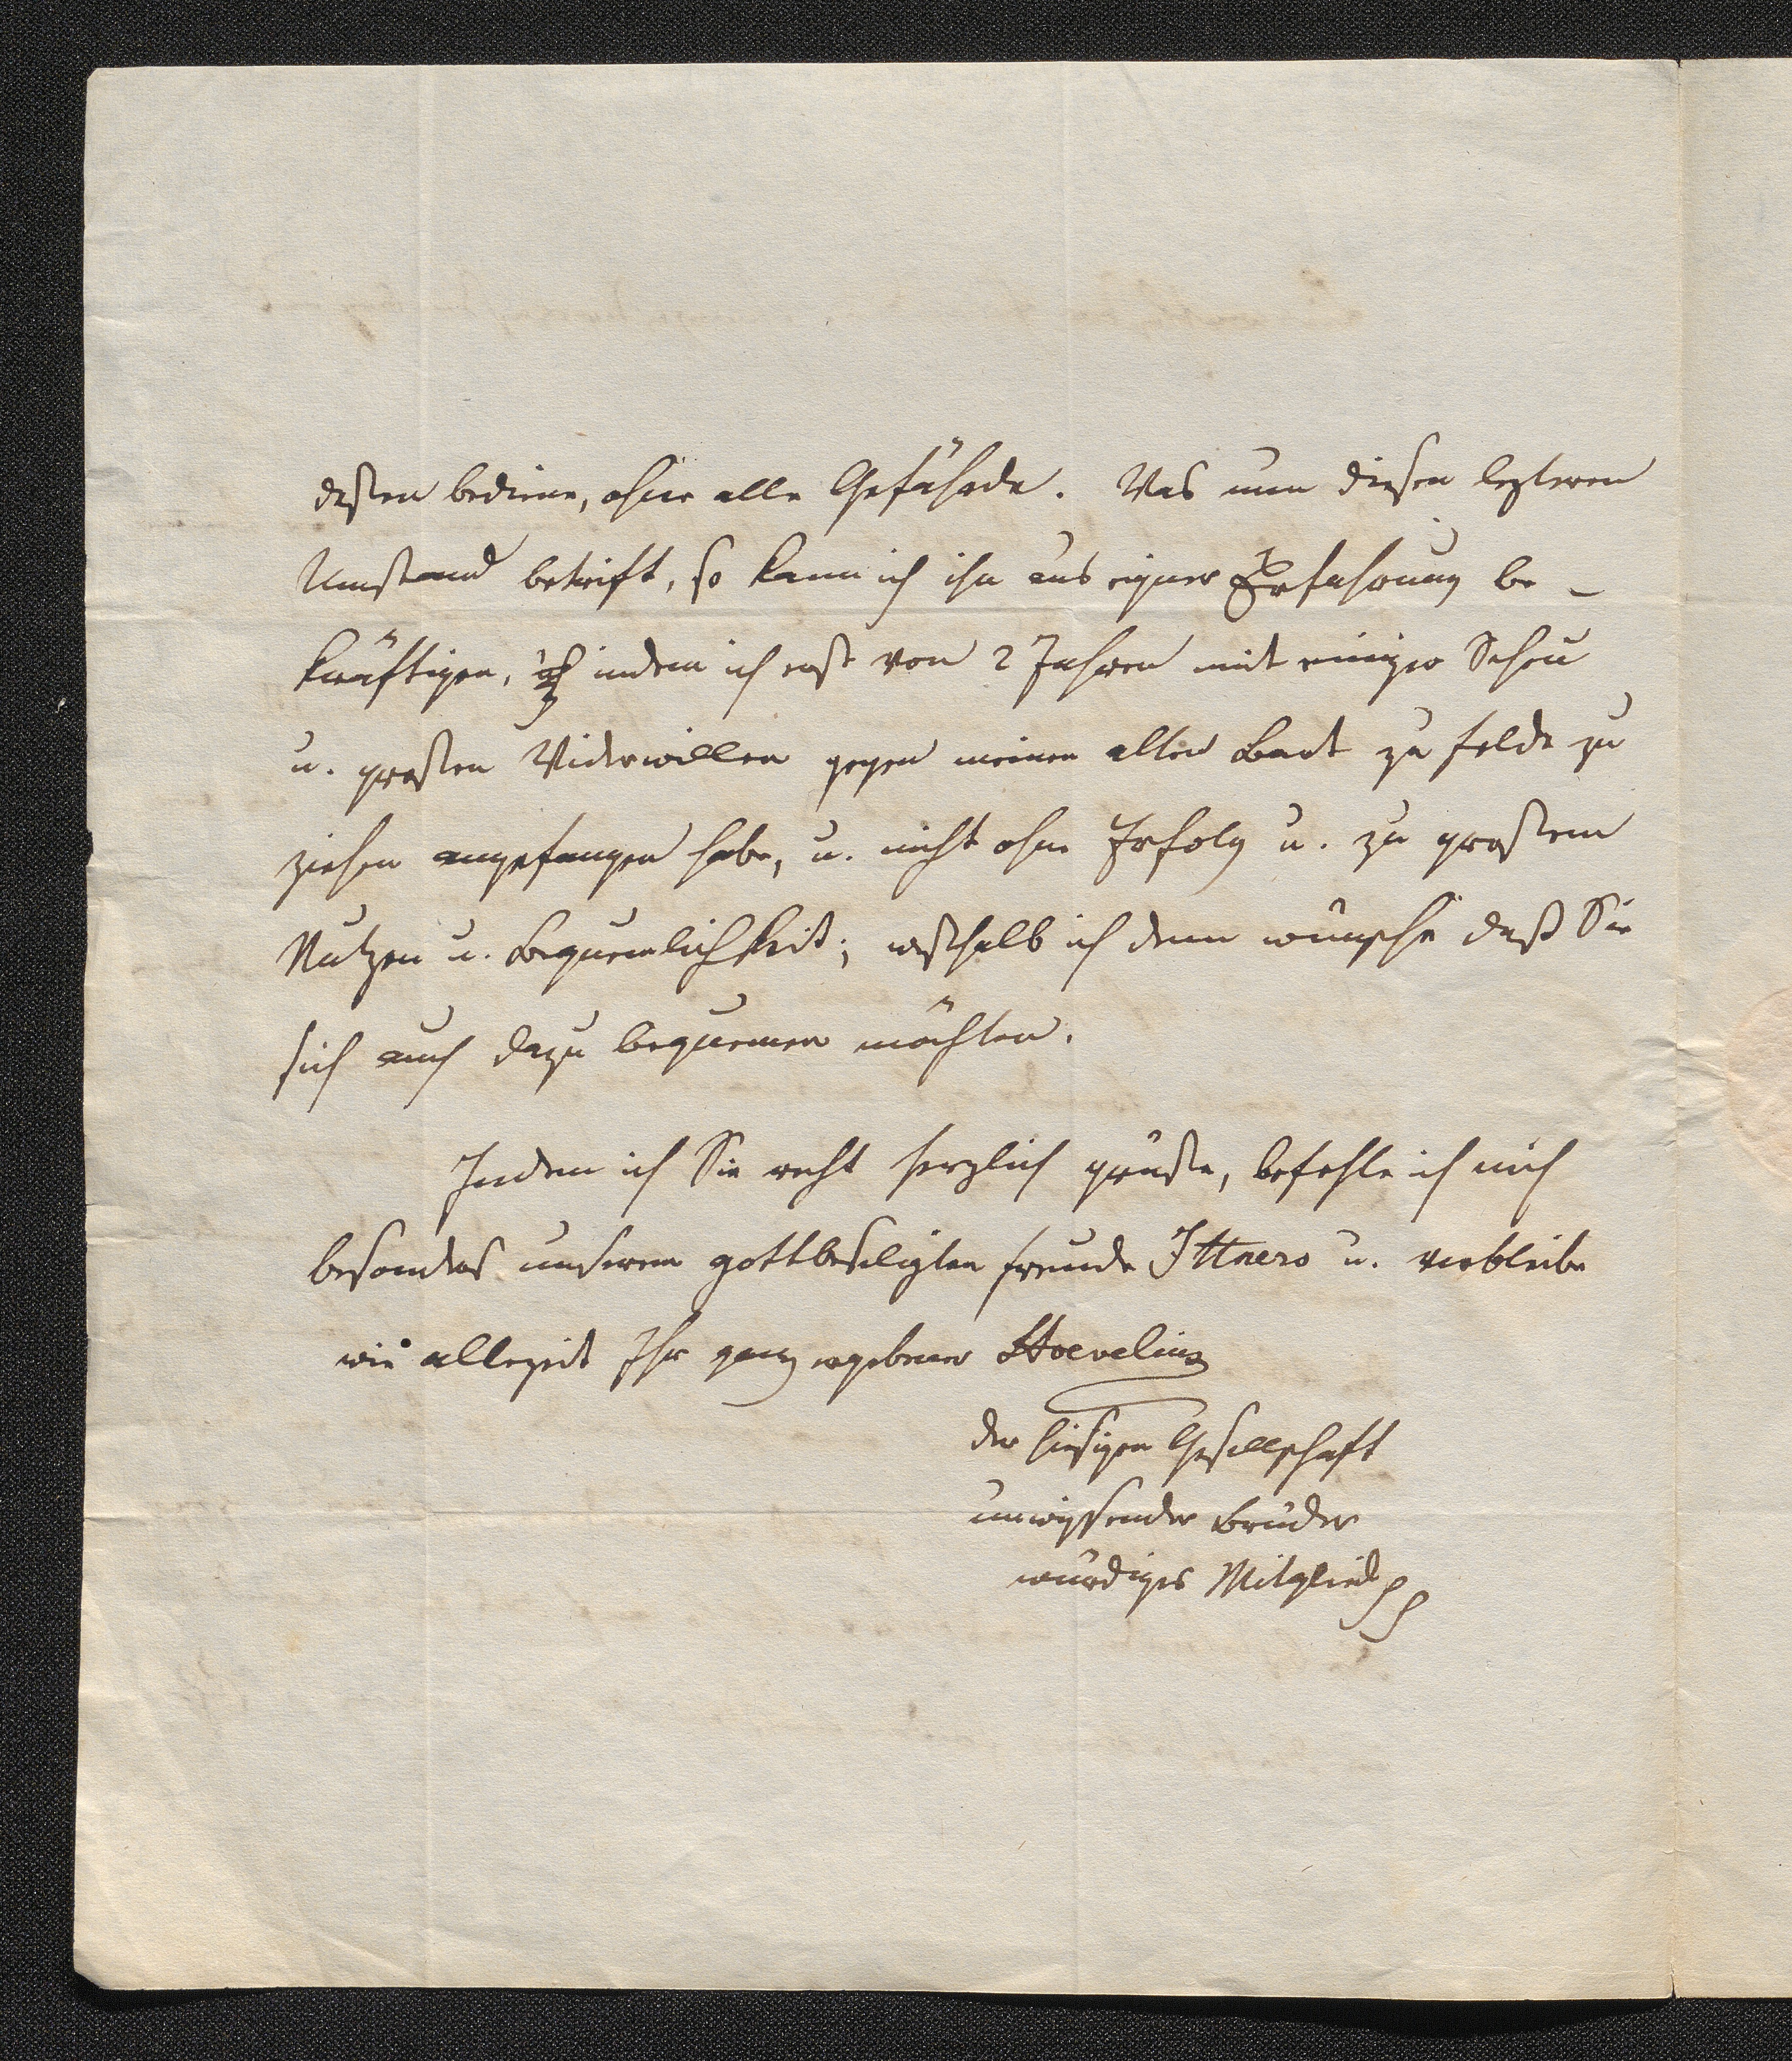 deßen bediene, ohne alle Gefährde. Was nun diesen lezteren
Umstand betrift, so kann ich ihn aus eigner Erfahrung be-
kräftigen, indem ich erst von 2 Jahren mit einiger Scheu
u. großen Widerwillen gegen meinen alten Bart zu felde zu
ziehen angefangen habe, u. nicht ohne Erfolg u. zu großem
Nutzen u. Bequemlichkeit; weshalb ich denn wünsche daß Sie
sich auch dazu bequemen möchten.
Indem ich Sie recht herzlich grüße, befehle ich mich
besonders unserem gottbeseligten freunde Ittnero u. verbleibe
wie allezeit Ihr ganz ergebener Hoevelius
der hiesigen Gesellschaft
unwissender Brüder
würdiges Mitglied